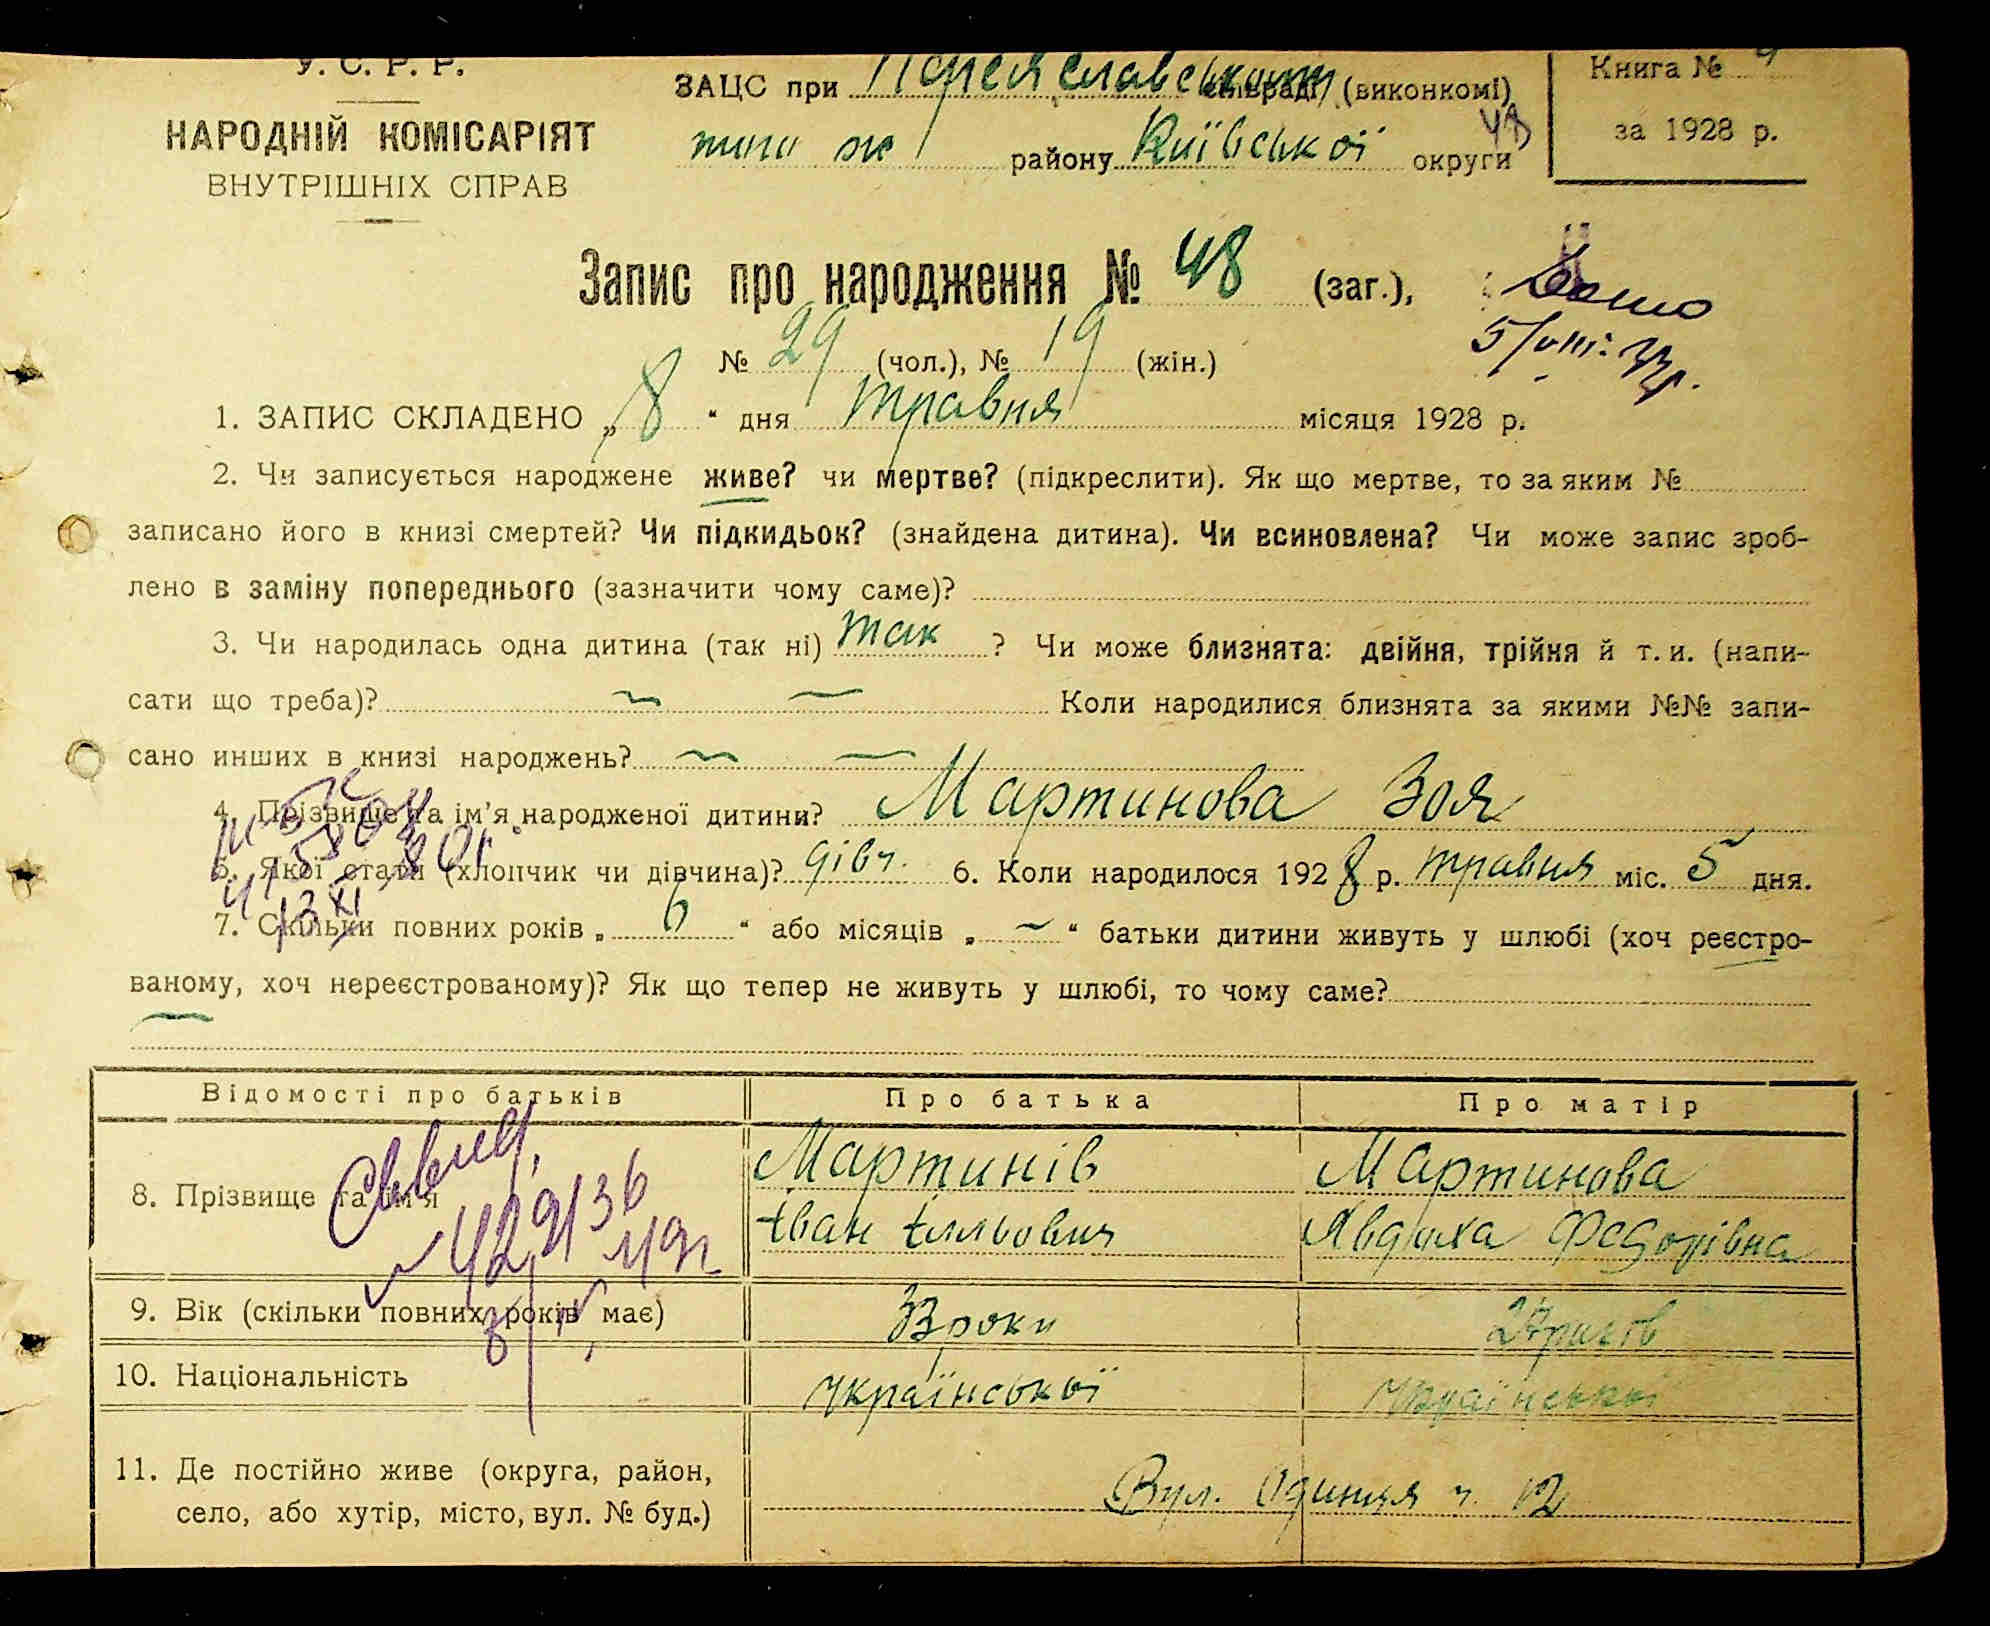 У. С. Р. Р.
НАРОДНІЙ КОМІСАРІЯТ
ВНУТРІШНІХ СПРАВ
ЗАЦС при Переяславському (виконкомі)
того ж району Київської округи
48
Книга №
за 1928 р.
Запис про народження № 48 (заг.),
№ 29 (чол.), № 19 (жін.)
5/VIII-33р.
1. ЗАПИС СКЛАДЕНО „8“ дня травня місяця 1928 р.
2. Чи записується народжене живе? чи мертве? (підкреслити). Як що мертве, то за яким №
записано його в книзі смертей? Чи підкидьок? (знайдена дитина). Чи всиновлена? Чи може запис зроб-
лено в заміну попереднього (зазначити чому саме)?
3. Чи народилась одна дитина (так ні) так ? Чи може близнята: двійня, трійня й т. и. (напи-
сати що треба)? Коли народилися близнята за якими №№ запи-
сано инших в книзі народжень?
4. Прізвище та ім’я народженої дитини? Мартинова Зоя
5. Якої стати (хлопчик чи дівчина)? дівч. 6. Коли народилося 1928 р. травня міс. 5 дня.
7. Скільки повних років „ 6 “ або місяців „ ~ “ батьки дитини живуть у шлюбі (хоч реєстро-
ваному, хоч нереєстрованому)? Як що тепер не живуть у шлюбі, то чому саме?
Відомості про батьків Про батька Про матір
8. Прізвище та ім’я Мартинів Мартинова
Іван Ілльович Явдоха Федорівна
9. Вік (скільки повних років має) 33 роки 27 років
10. Національність української української
11. Де постійно живе (округа, район,
село, або хутір, місто, вул. № буд.) Вул. Одинця ч. 12